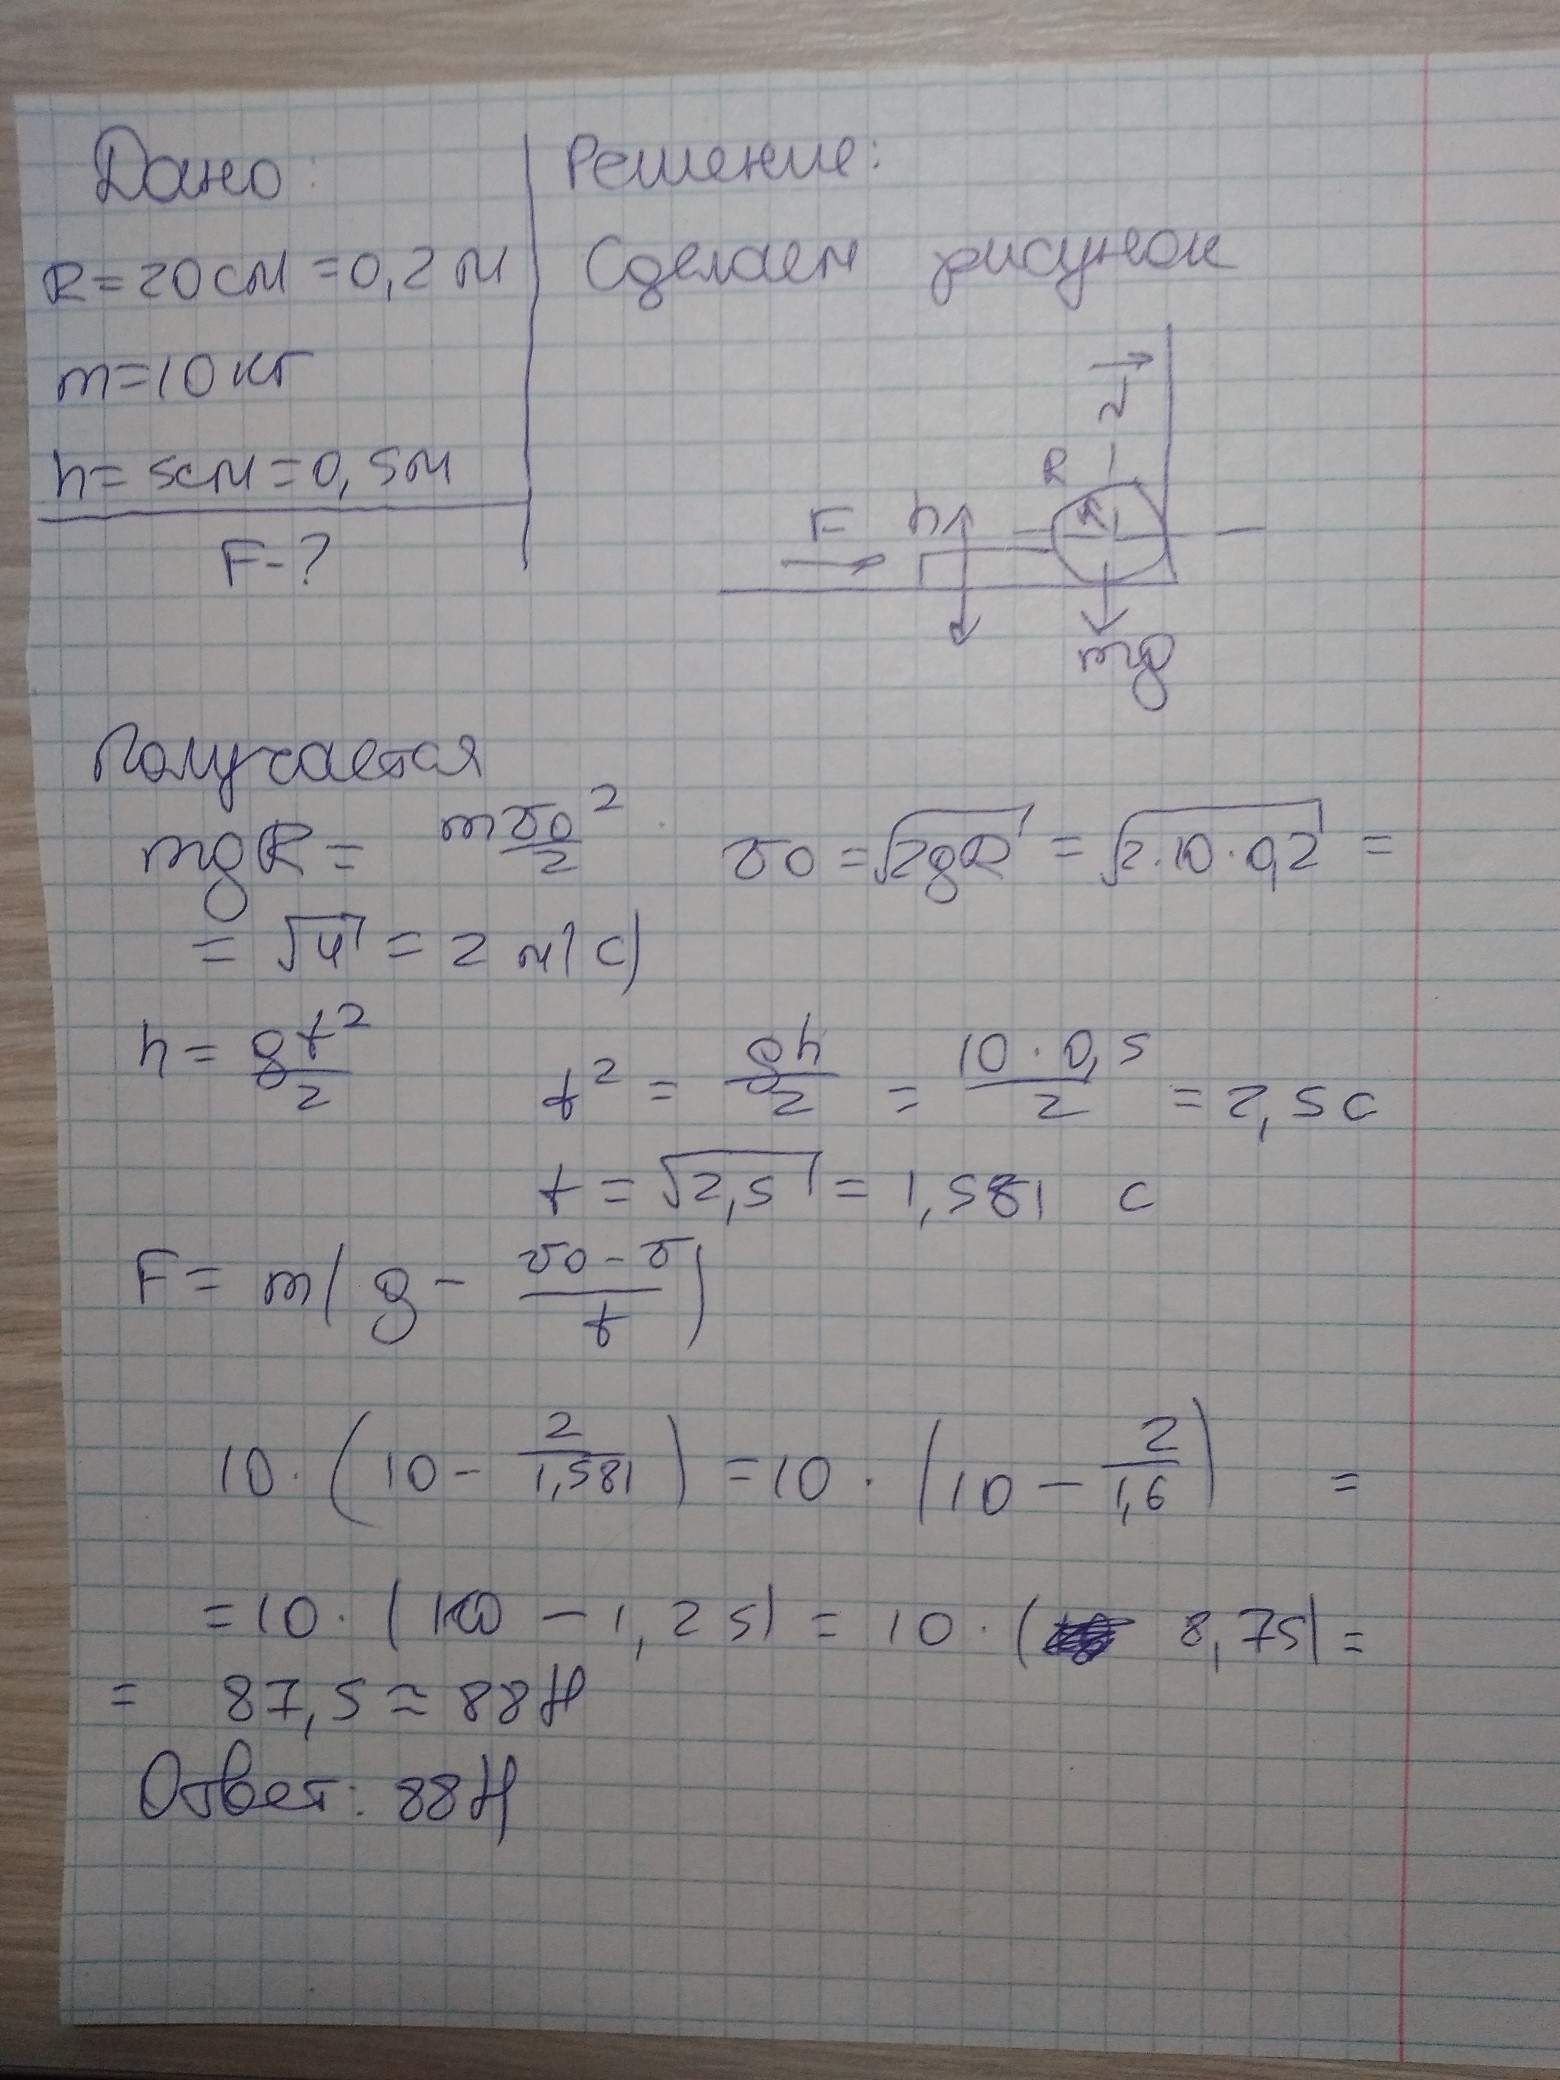 Дано:
R=20см=0,2м
m=10кг
h=5см=0,5м
F-?
Решение:
Сделаем рисунок
R
F h
mg
Получается
mgR = mv0²/2 v0 = √2gR = √2·10·0,2 =
= √4 = 2 м/с)
h = gt²/2 t² = gh/2 = 10·0,5/2 = 2,5 с
t = √2,5 = 1,581 с
F = m(g - v0-v/t)
10·(10 - 2/1,581) = 10·(10 - 2/1,6) =
= 10·(10 - 1,25) = 10·( 8,75) =
= 87,5 ≈ 88Н
Ответ: 88Н